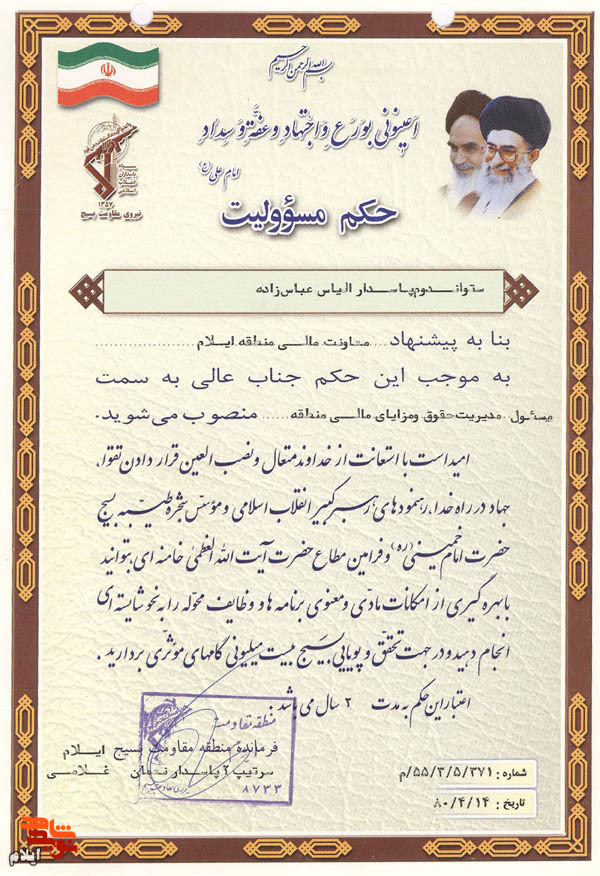 بسم الله الرحمن الرحیم
اعینونی بورع واجتهاد وعفة وسداد
امام علی (ع)
۱۳۵۷
نیروی مقاومت بسیج
حکم مسؤولیت
ستوان دوم پاسدار الیاس عباس زاده
بنا به پیشنهاد .... معاونت مالی منطقه ایلام ....................
به موجب این حکم جناب عالی به سمت
مسئول مدیریت حقوق ومزایای مالی منطقه ...... منصوب می‌شوید.
امید است با استعانت از خداوند متعال و نصب العین قرار دادن تقوا،
جهاد در راه خدا، رهنمودهای رهبر کبیر انقلاب اسلامی و مؤسس شجره طیبه بسیج
حضرت امام خمینی (ره) و فرامین مطاع حضرت آیت الله العظمی خامنه ای بتوانید
با بهره گیری از امکانات مادّی و معنوی برنامه ها و وظایف محوّله را به نحو شایسته ای
انجام دهید و در جهت تحقق و پویایی بسیج بیست میلیونی گامهای مؤثّری بردارید.
اعتبار این حکم به مدت ۲ سال می باشد.
منطقه مقاومت
فرمانده منطقه مقاومت بسیج ایلام
سرتیپ ۲ پاسدار نعمان غلامی
۸۷۳۳
شماره : ۵۵/۳/۵/۳۷۱/م
تاریخ : ۸۰/۴/۱۴
نوید شاهد
ایلام